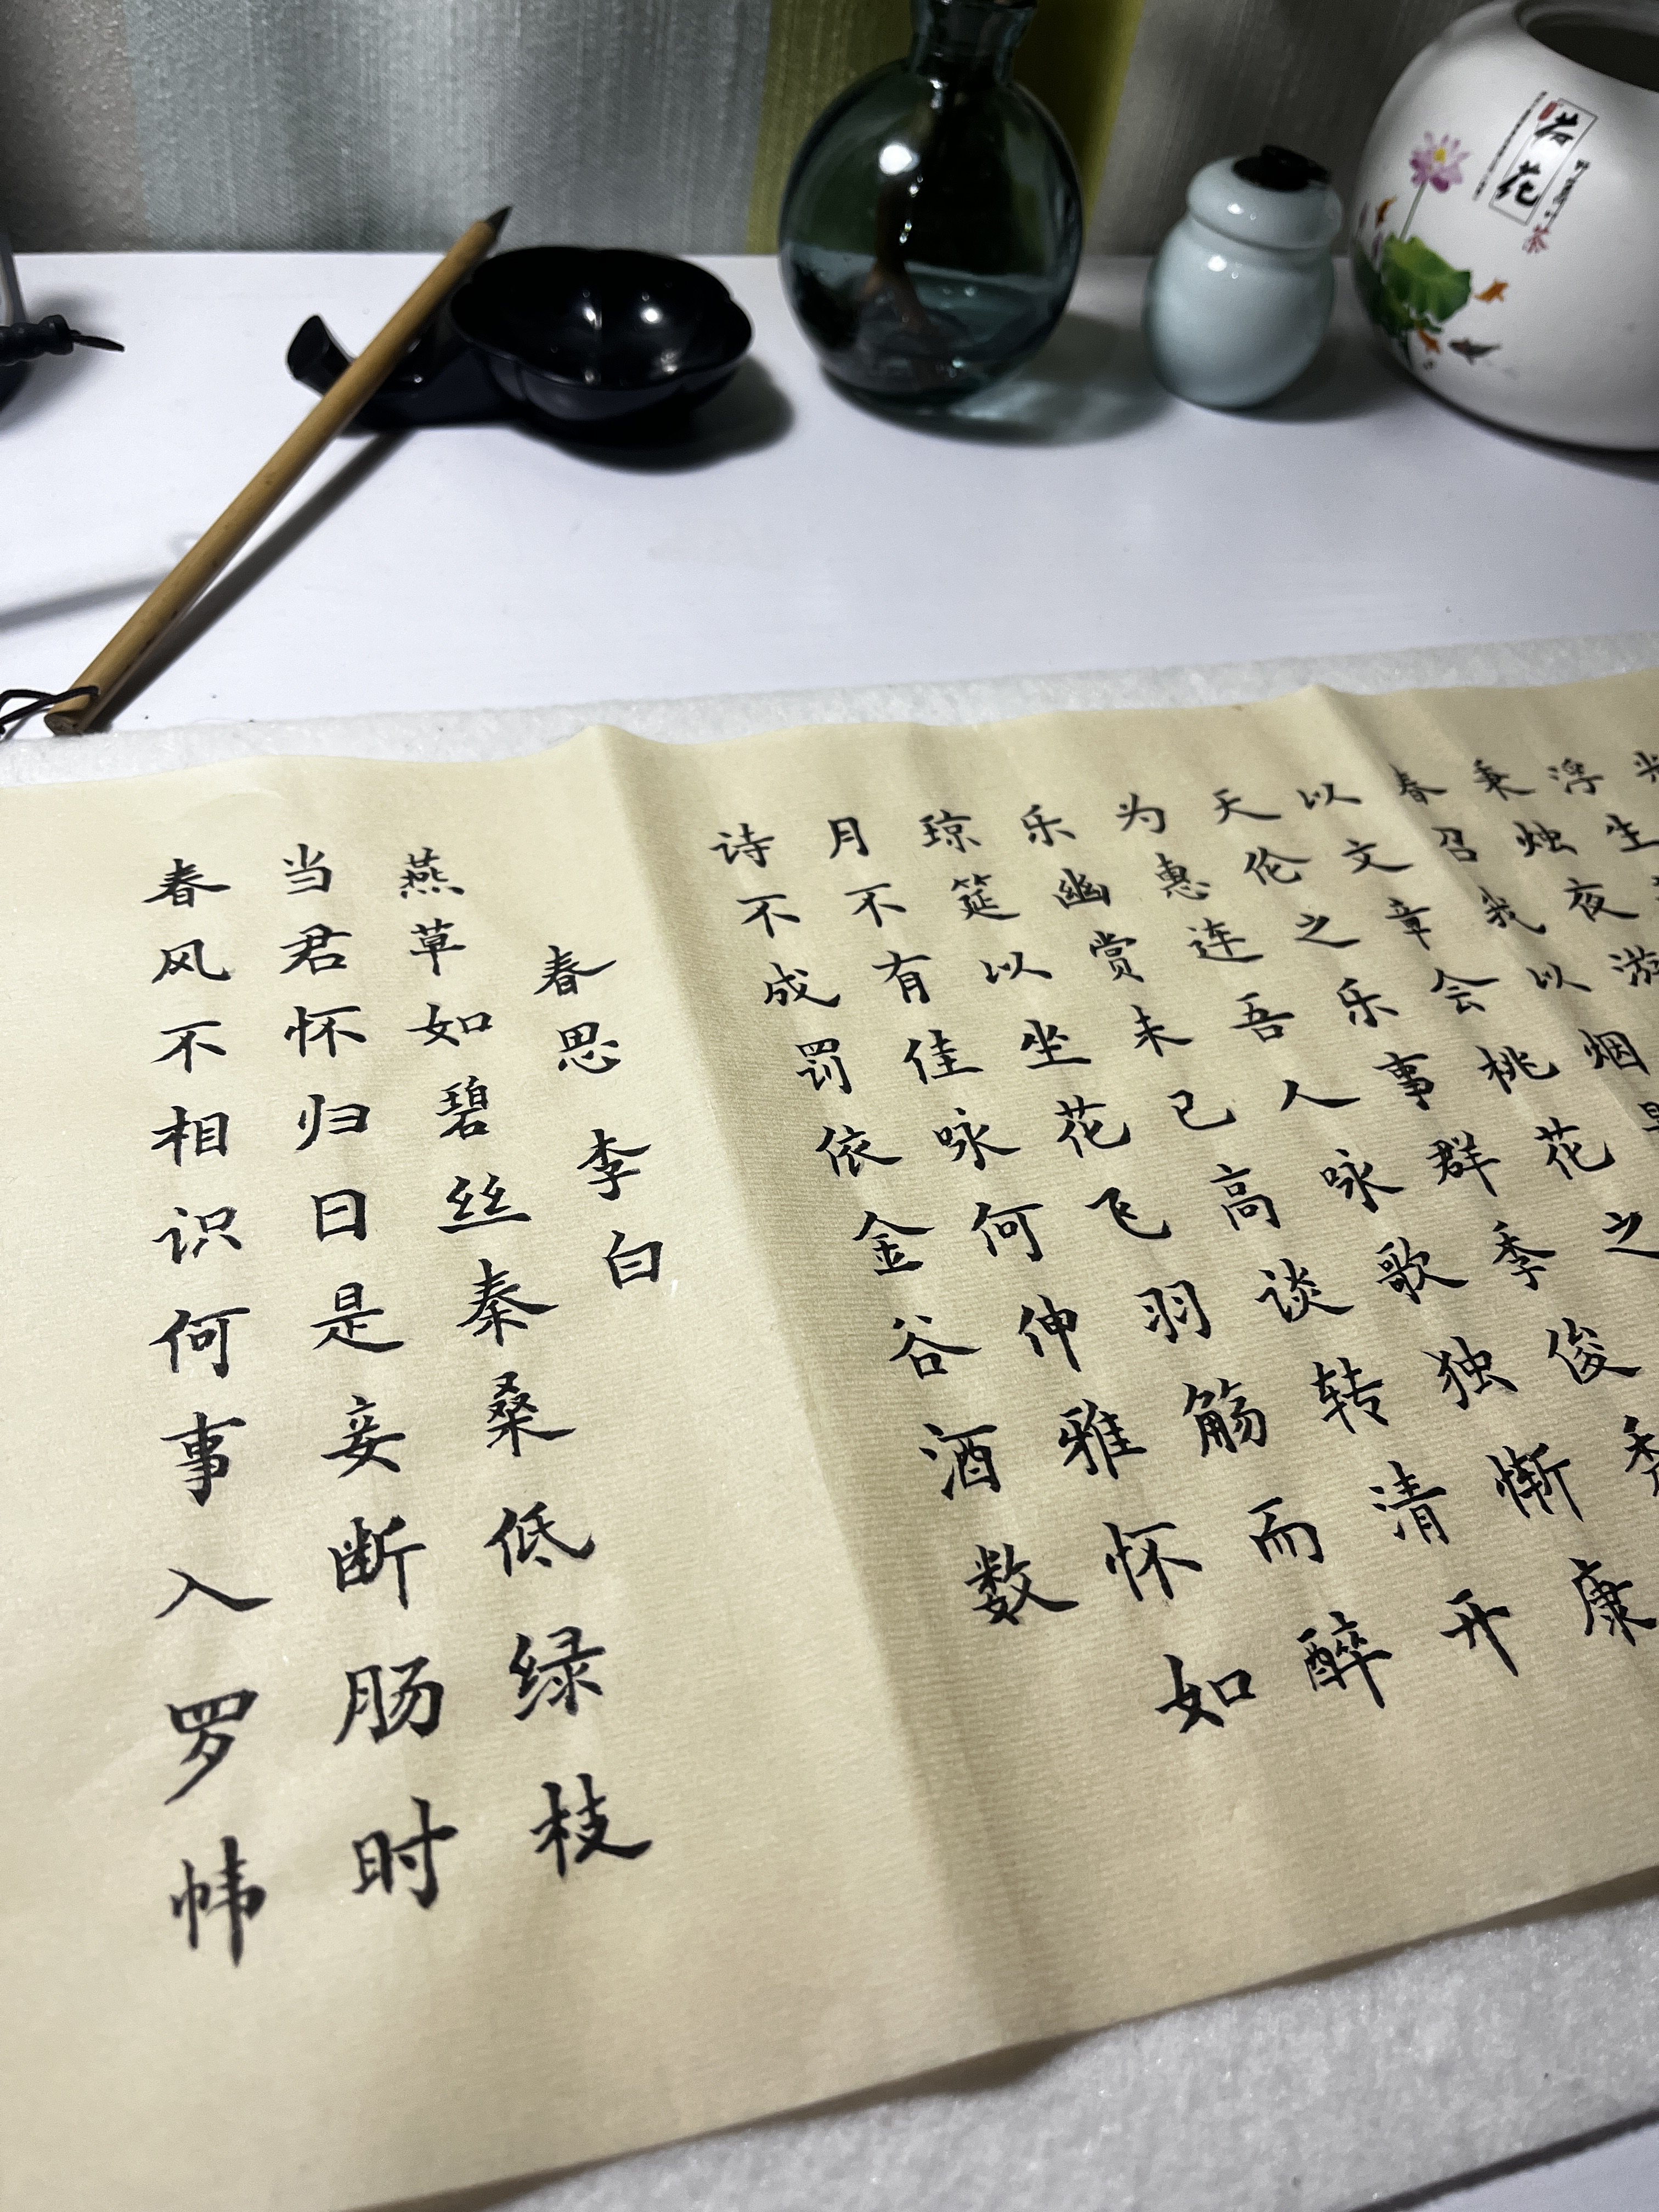 浮生
秉烛夜游
春召我以烟
以文章会桃花之
天伦之乐事群季俊秀
为惠连吾人咏歌独惭康
乐幽赏未已高谈转清开
琼筵以坐花飞羽觞而醉
月不有佳咏何伸雅怀如
诗不成罚依金谷酒数
春思 李白
燕草如碧丝秦桑低绿枝
当君怀归日是妾断肠时
春风不相识何事入罗帏
荷花
茶